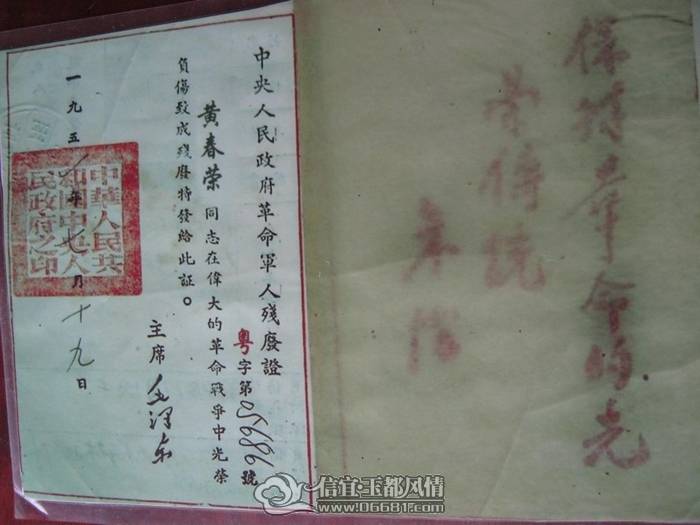 保持革命的光
荣傳统
朱德
中央人民政府革命軍人殘廢證
粤字第 號
黄春荣同志在偉大的革命戰爭中光榮
負傷致成殘廢特發給此証。
主席 毛澤东
一九五 年七月十九日
中華人民共
和國中央人
民政府之印
信宜·玉都风情
www.06681.com